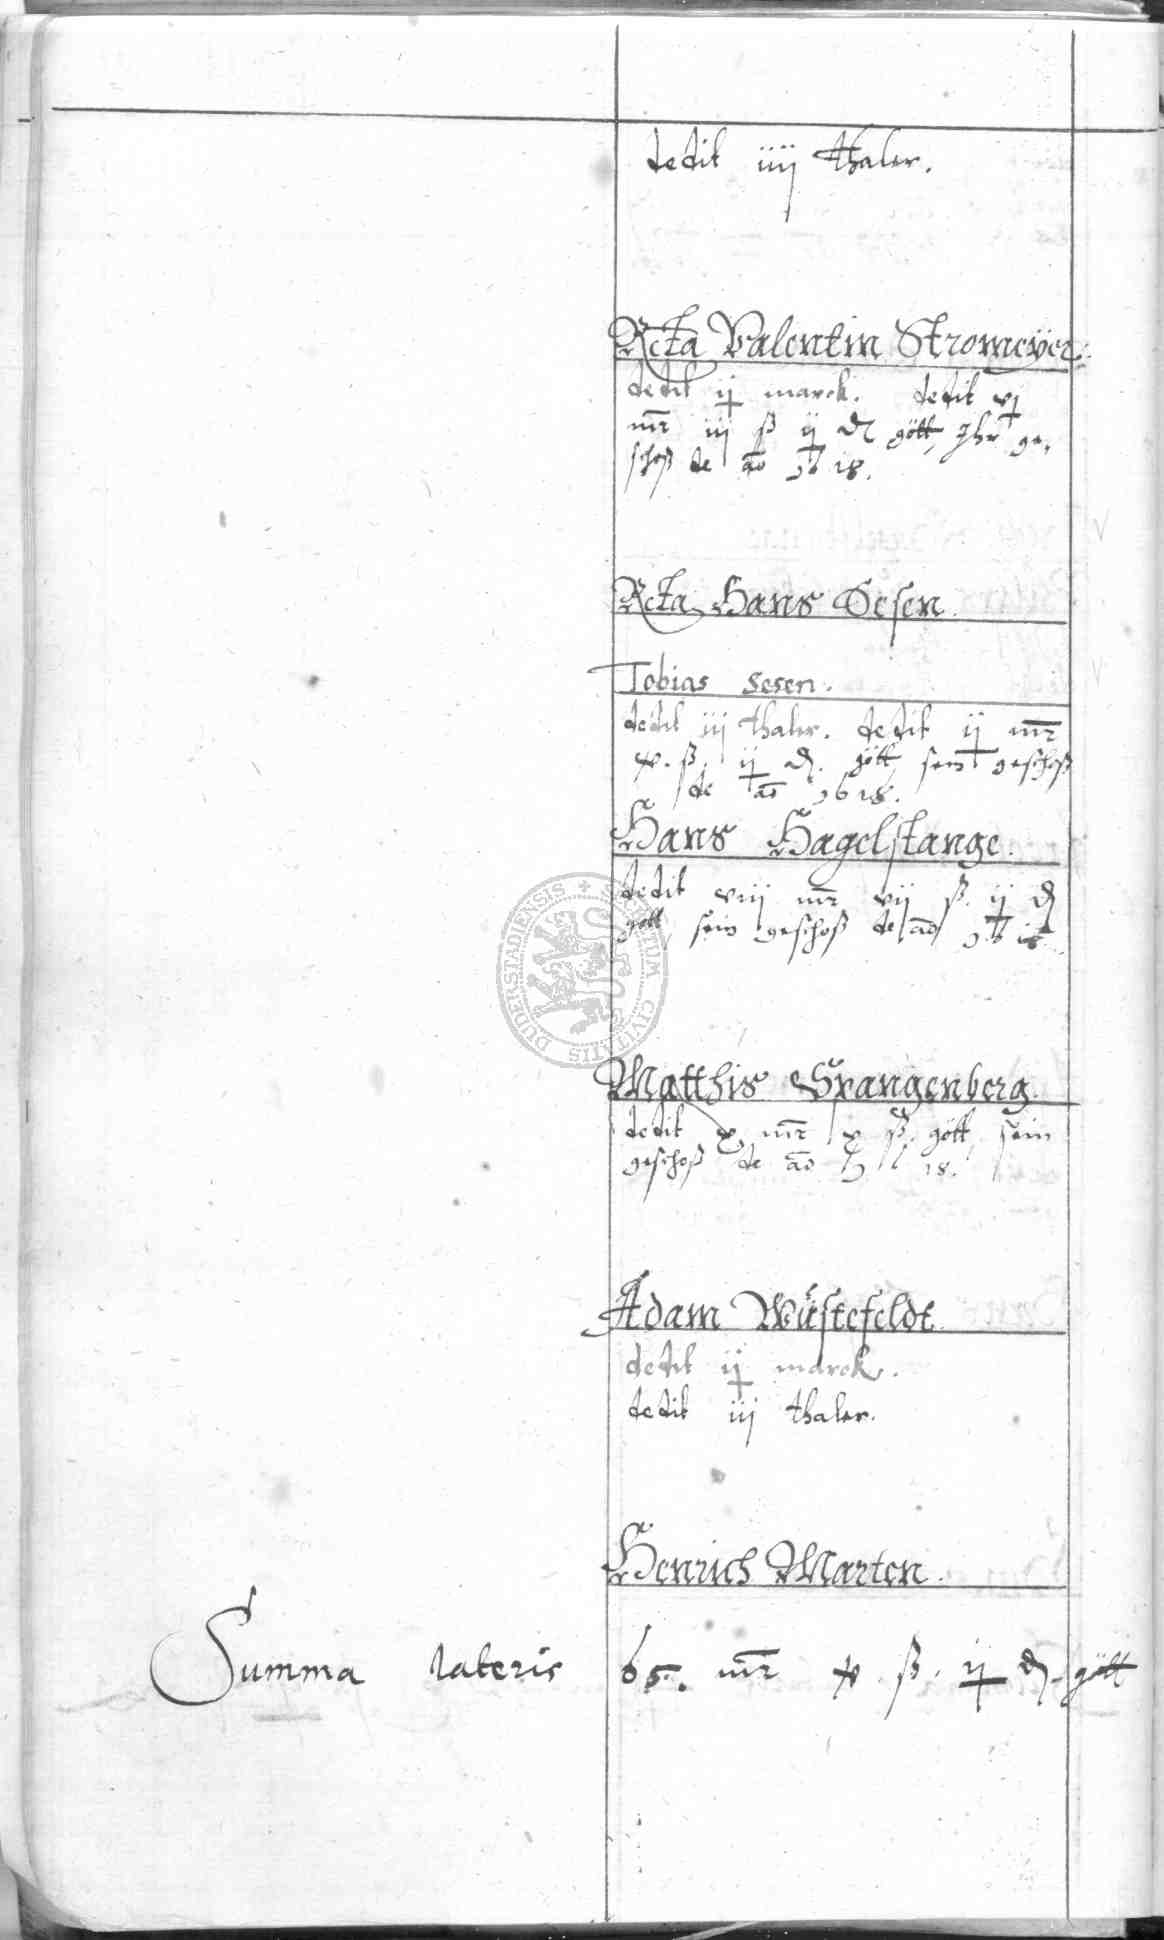 dedit iiij thaler.
Rcta Valentin Stromeyer.
dedit ij marck. dedit vj
mr iij ß ij ₰ gött, Ihr ge-
schoß de ao 1618.
Rcta Hans Sesen
Tobias Sesen.
dedit iij thaler. dedit ij mr
x. ß. ij ₰. gött, sein geschoß
de ao 1618.
Hans Hagelstange.
dedit viij mr vij ß. ij ₰
gött, sein geschoß de ao 1618
Matthis Wrangenberg.
dedit x mr x ß. gött, sein
geschoß de ao 1618.
Adam Wüstefeldt.
dedit ij marck.
dedit iij thaler.
Henrich Marten.
Summa lateris 65. mr x ß. ij ₰. gött
SIGILLUM CIVITATIS DUDERSTADIENSIS